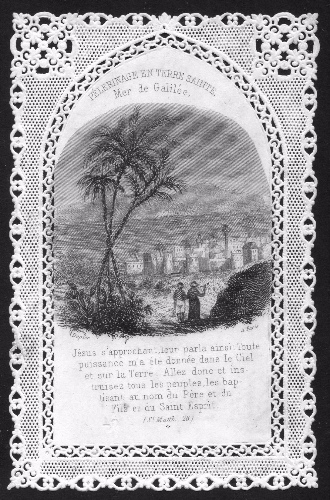 PÈLERINAGE EN TERRE SAINTE.
Mer de Galilée.
Jésus s'approchant, leur parla ainsi Toute
puissance m'a été donnée dans le Ciel
et sur la Terre. Allez donc et ins-
truisez tous les peuples, les bap-
tisant au nom du Père et du
Fils et du Saint Esprit.
(St Matth. 28.)